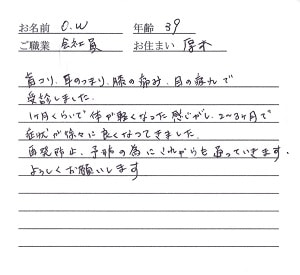 お名前 O.W 年齢 39
ご職業 会社員 お住まい 厚木
肩コリ、耳のつまり、膝の痛み、目の疲れで
受診しました。
1ヶ月くらいで体が軽くなった感じがし、2〜3ヶ月で
症状が徐々に良くなってきました。
再発防止、予防の為にこれからも通っていきます。
よろしくお願いします